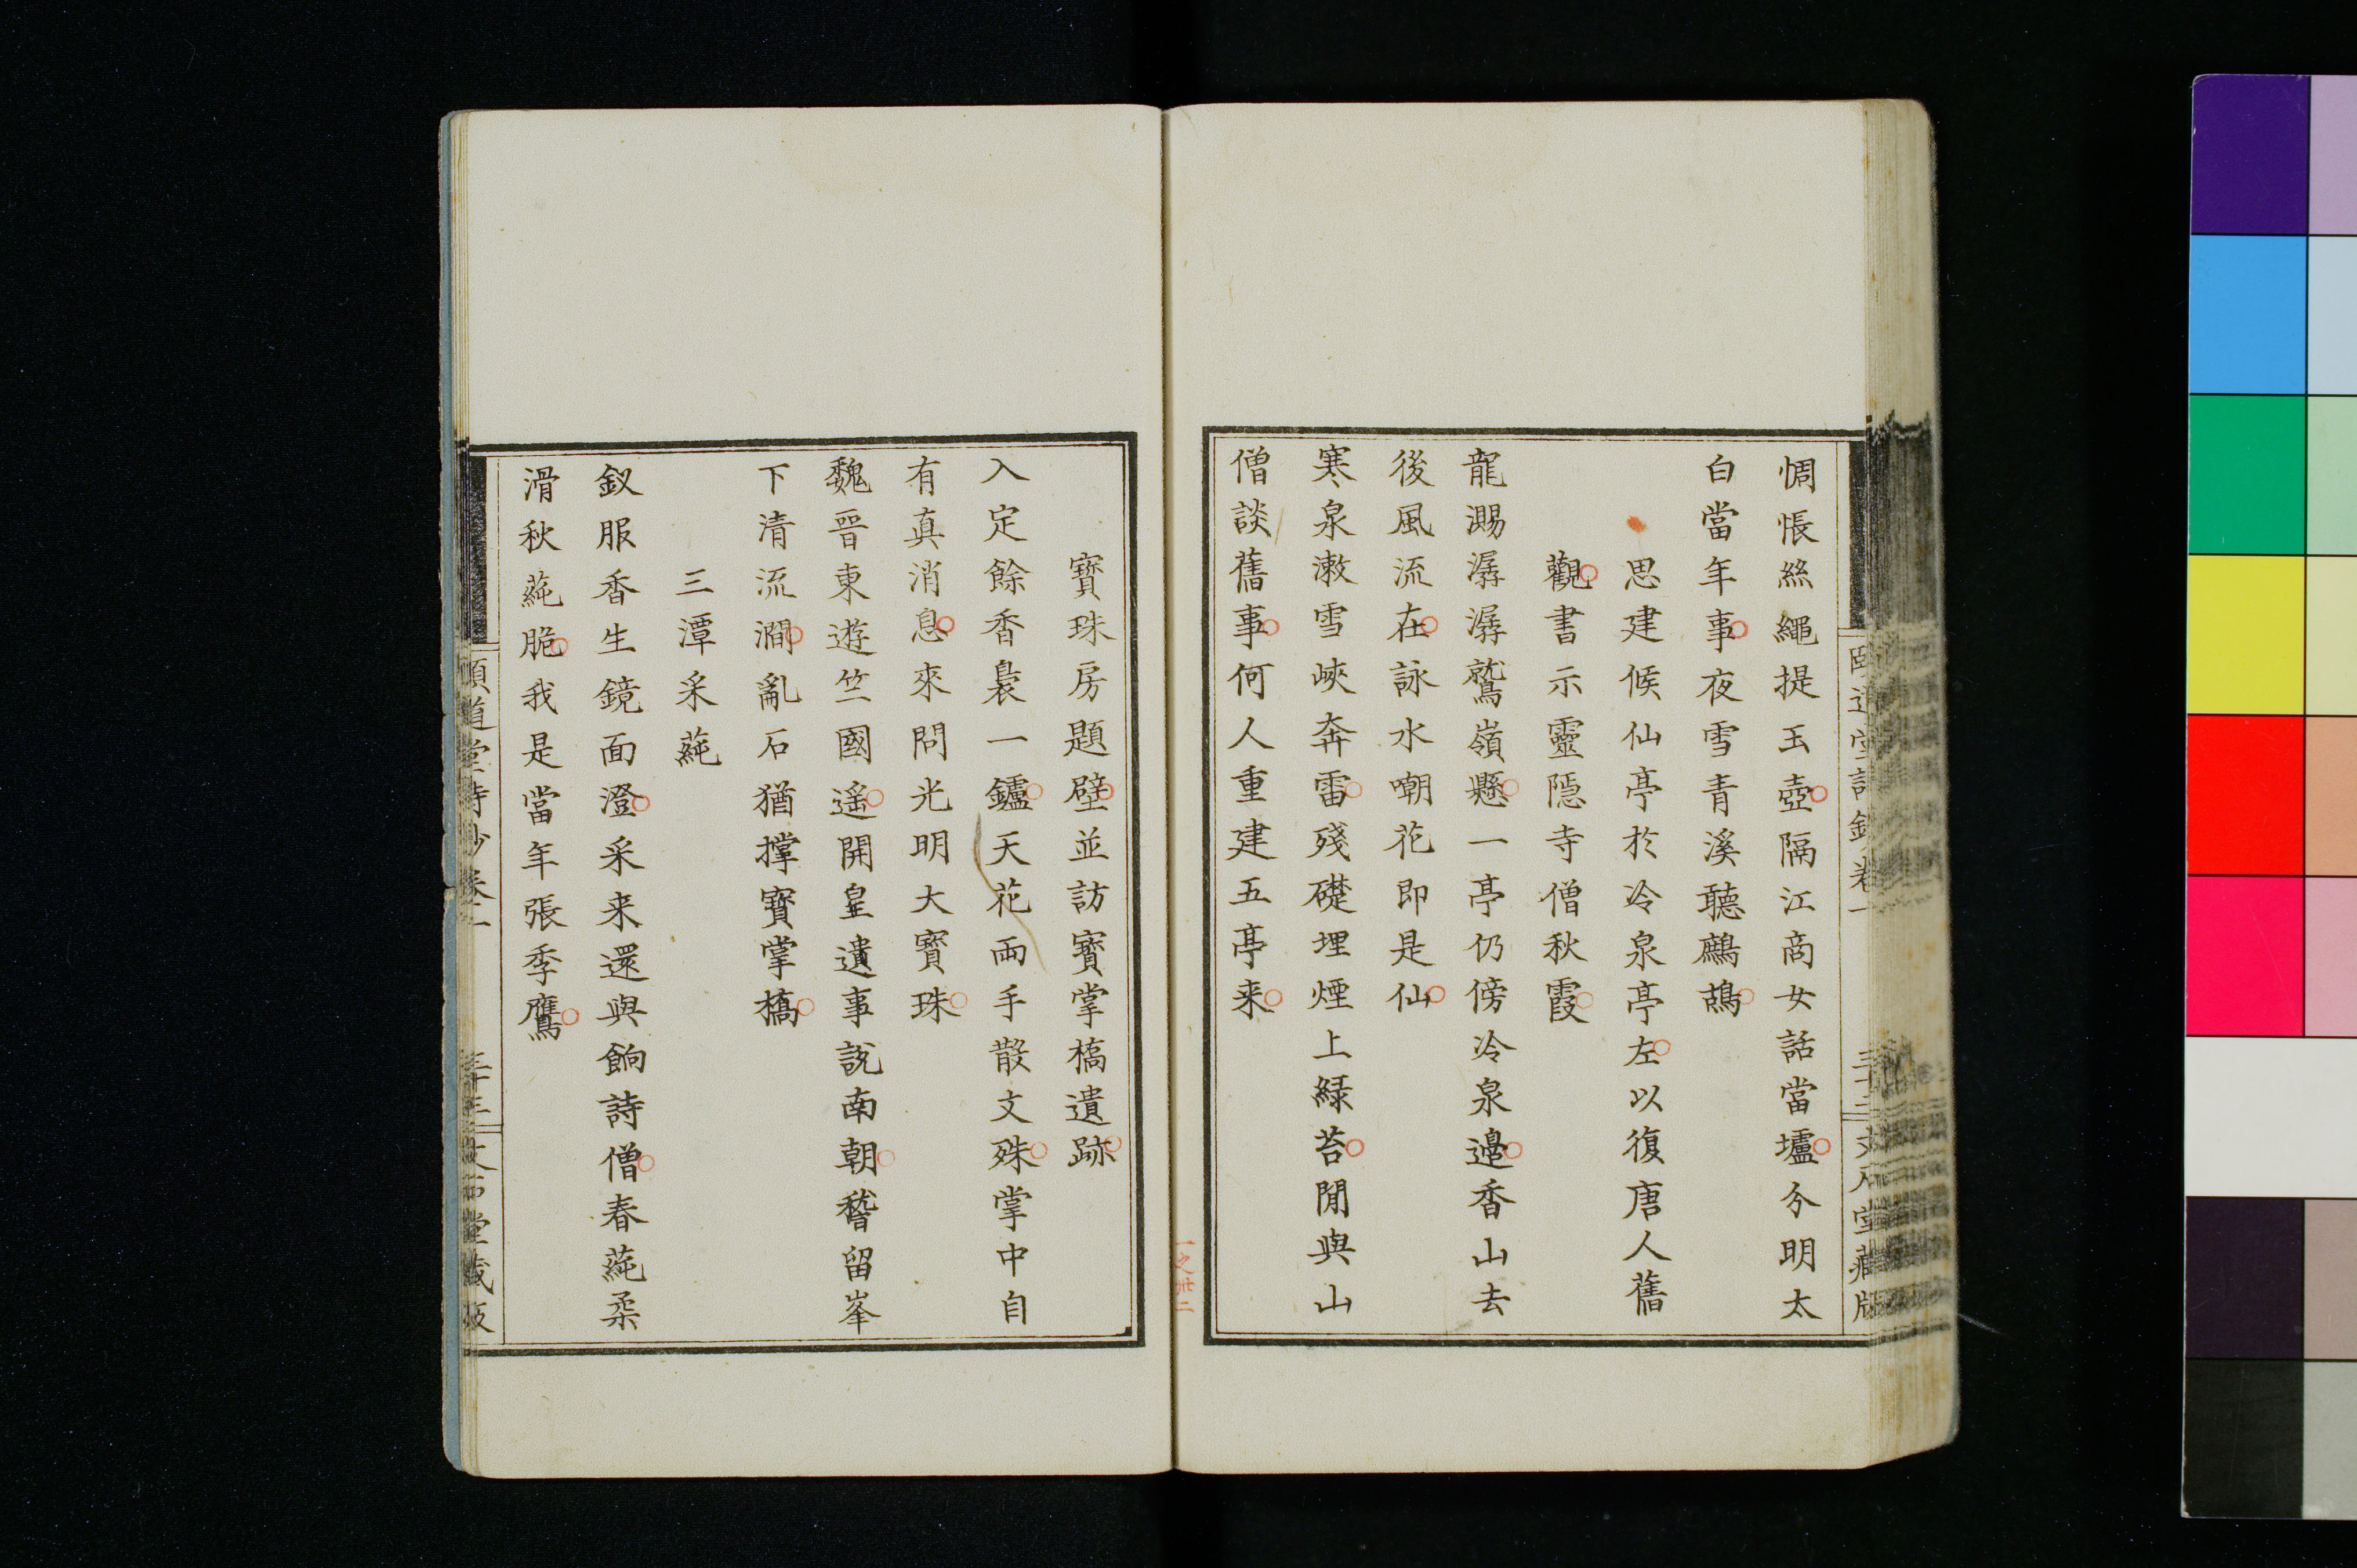 惆悵絲繩提玉壺隔江商女話當壚分明太
白當年事夜雪青溪聽鷓鴣
思建候仙亭於冷泉亭左以復唐人舊
觀書示靈隱寺僧秋霞
龍淵潺潺鷲嶺懸一亭仍傍冷泉邊香山去
後風流在詠水嘲花即是仙
寒泉漱雪峽奔雷殘礎埋煙上緑苔閒與山
僧談舊事何人重建五亭来
一之卅二
寶珠房題壁並訪寶掌橋遺跡
入定餘香裊一鑪天花兩手散文殊掌中自
有真消息來問光明大寶珠
魏晉東遊竺國遙開皇遺事說南朝嵇留峯
下清流澗亂石猶撐寶掌橋
三潭采蒓
釵服香生鏡面澄采来還與餉詩僧春蒓柔
滑秋蒓脆我是當年張季鷹
頤道堂詩鈔卷一
三十三
文石堂藏版